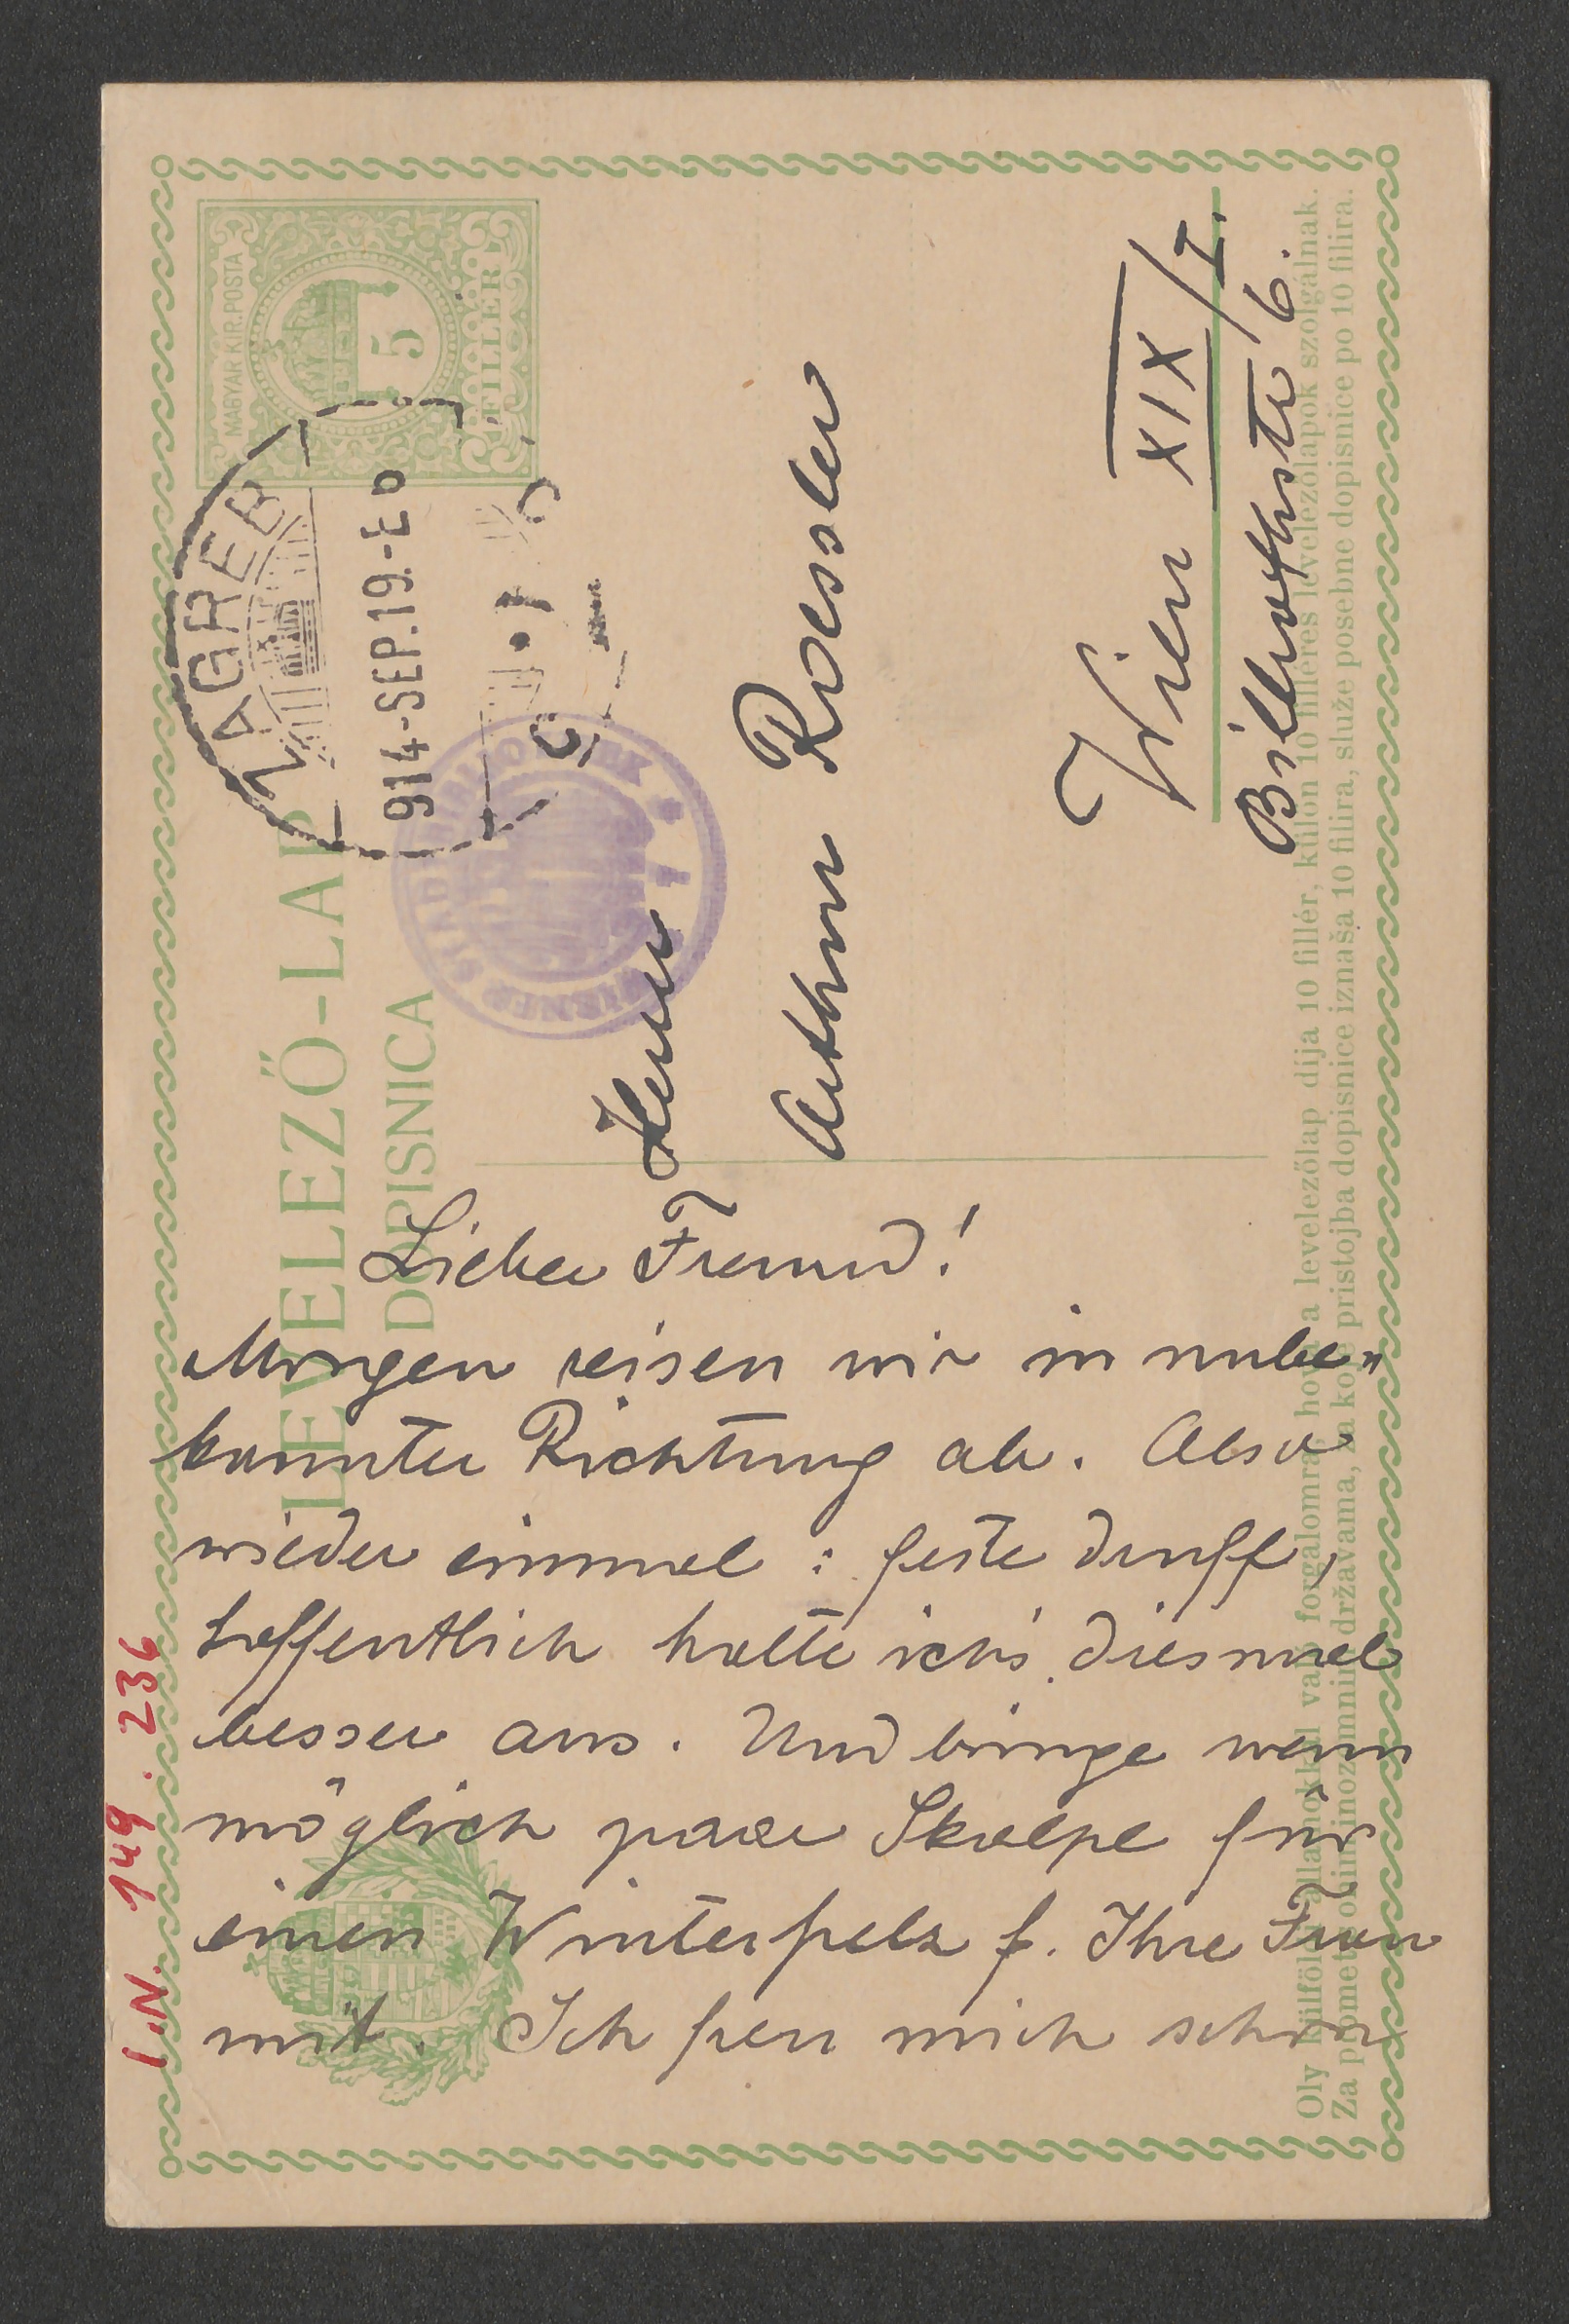 MAGYAR KIR. POSTA
5
FILLER
ZAGREB
914-SEP.19.
LEVELEZŐ-LAP
DOPISNICA
Herrn
Arthur Roessler
Wien XIX/I.
Billrothstr 6.
Oly külföldi államokkal való forgalomra, hova a levelezőlap díja 10 fillér, külön 10 filléres levelezőlapok szolgálnak.
Za promet s onim inozemnim državama, za koje pristojba dopisnice iznaša 10 filira, služe posebne dopisnice po 10 filira.
Lieber Freund!
Morgen reisen wir in unbe=
kannter Richtung ab. Also
wieder einmal: feste druff,
hoffentlich halte ich's diesmal
besser aus. Und bringe wenn
möglich paar Skalpe für
einen Winterpelz f. Ihre Frau
mit. Ich freu mich schon
I.N. 149.236